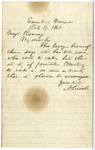 Executive Mansion
Oct. 17, 1861
Majr. Ramsey
My dear Sir
The lady bearer of
this says she has two sons
who want to work. Set them
at it, if possible. Wanting
to work is so rare a want
that it should be encouraged
Yours truly
A. Lincoln